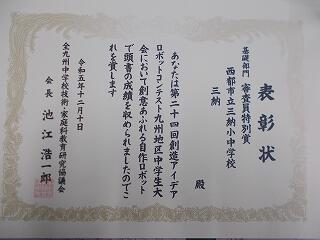 表彰状
基礎部門　審査員特別賞
西都市立三納小中学校
三納
殿
あなたは第二十四回創造アイデア
ロボットコンテスト九州地区中学生大
会において創意あふれる自作ロボット
で頭書の成績を収められましたのでこ
れを賞します
令和五年十二月十日
全九州中学校技術・家庭科教育研究協議会
会長　池江浩一郎